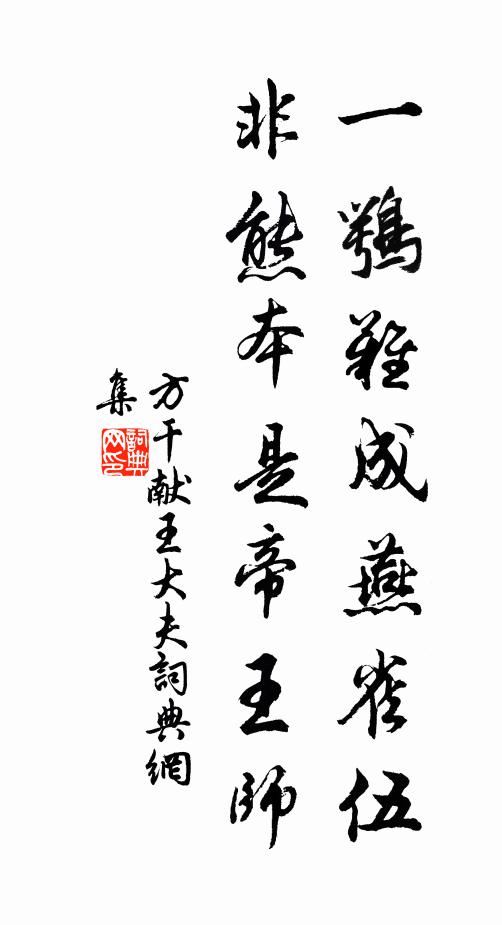 一鶚難成燕雀伍
非熊本是帝王師
方干献王大夫詞典網
集
詞典
网印